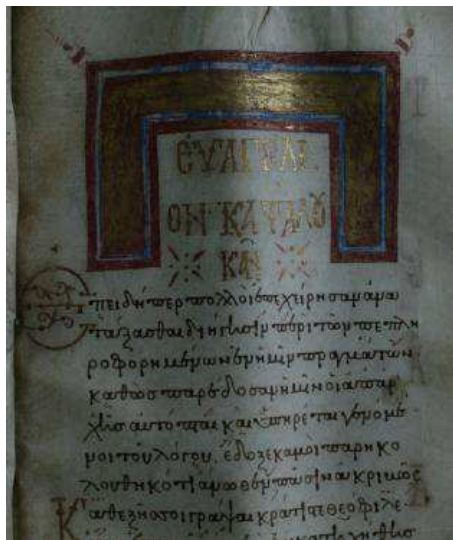 ΕΥΑΓΓΕΛΙ
ΟΝ ΚΑΤΑ ΛΟΥ
ΚΑΝ
Ἐπειδήπερ πολλοὶ ἐπεχείρησαν ἀνα
τάξασθαι διήγησιν περὶ τῶν πεπλη
ροφορημένων ἐν ἡμῖν πραγμάτων
καθὼς παρέδοσαν ἡμῖν οἱ ἀπαρ
χῆς αὐτόπται καὶ ὑπηρέται γενόμε
νοι τοῦ λόγου. ἔδοξε κἀμοὶ παρηκο
λουθηκότι ἄνωθεν πᾶσιν ἀκριβῶς
καθεξῆς σοι γράψαι κράτιστε θεόφιλε